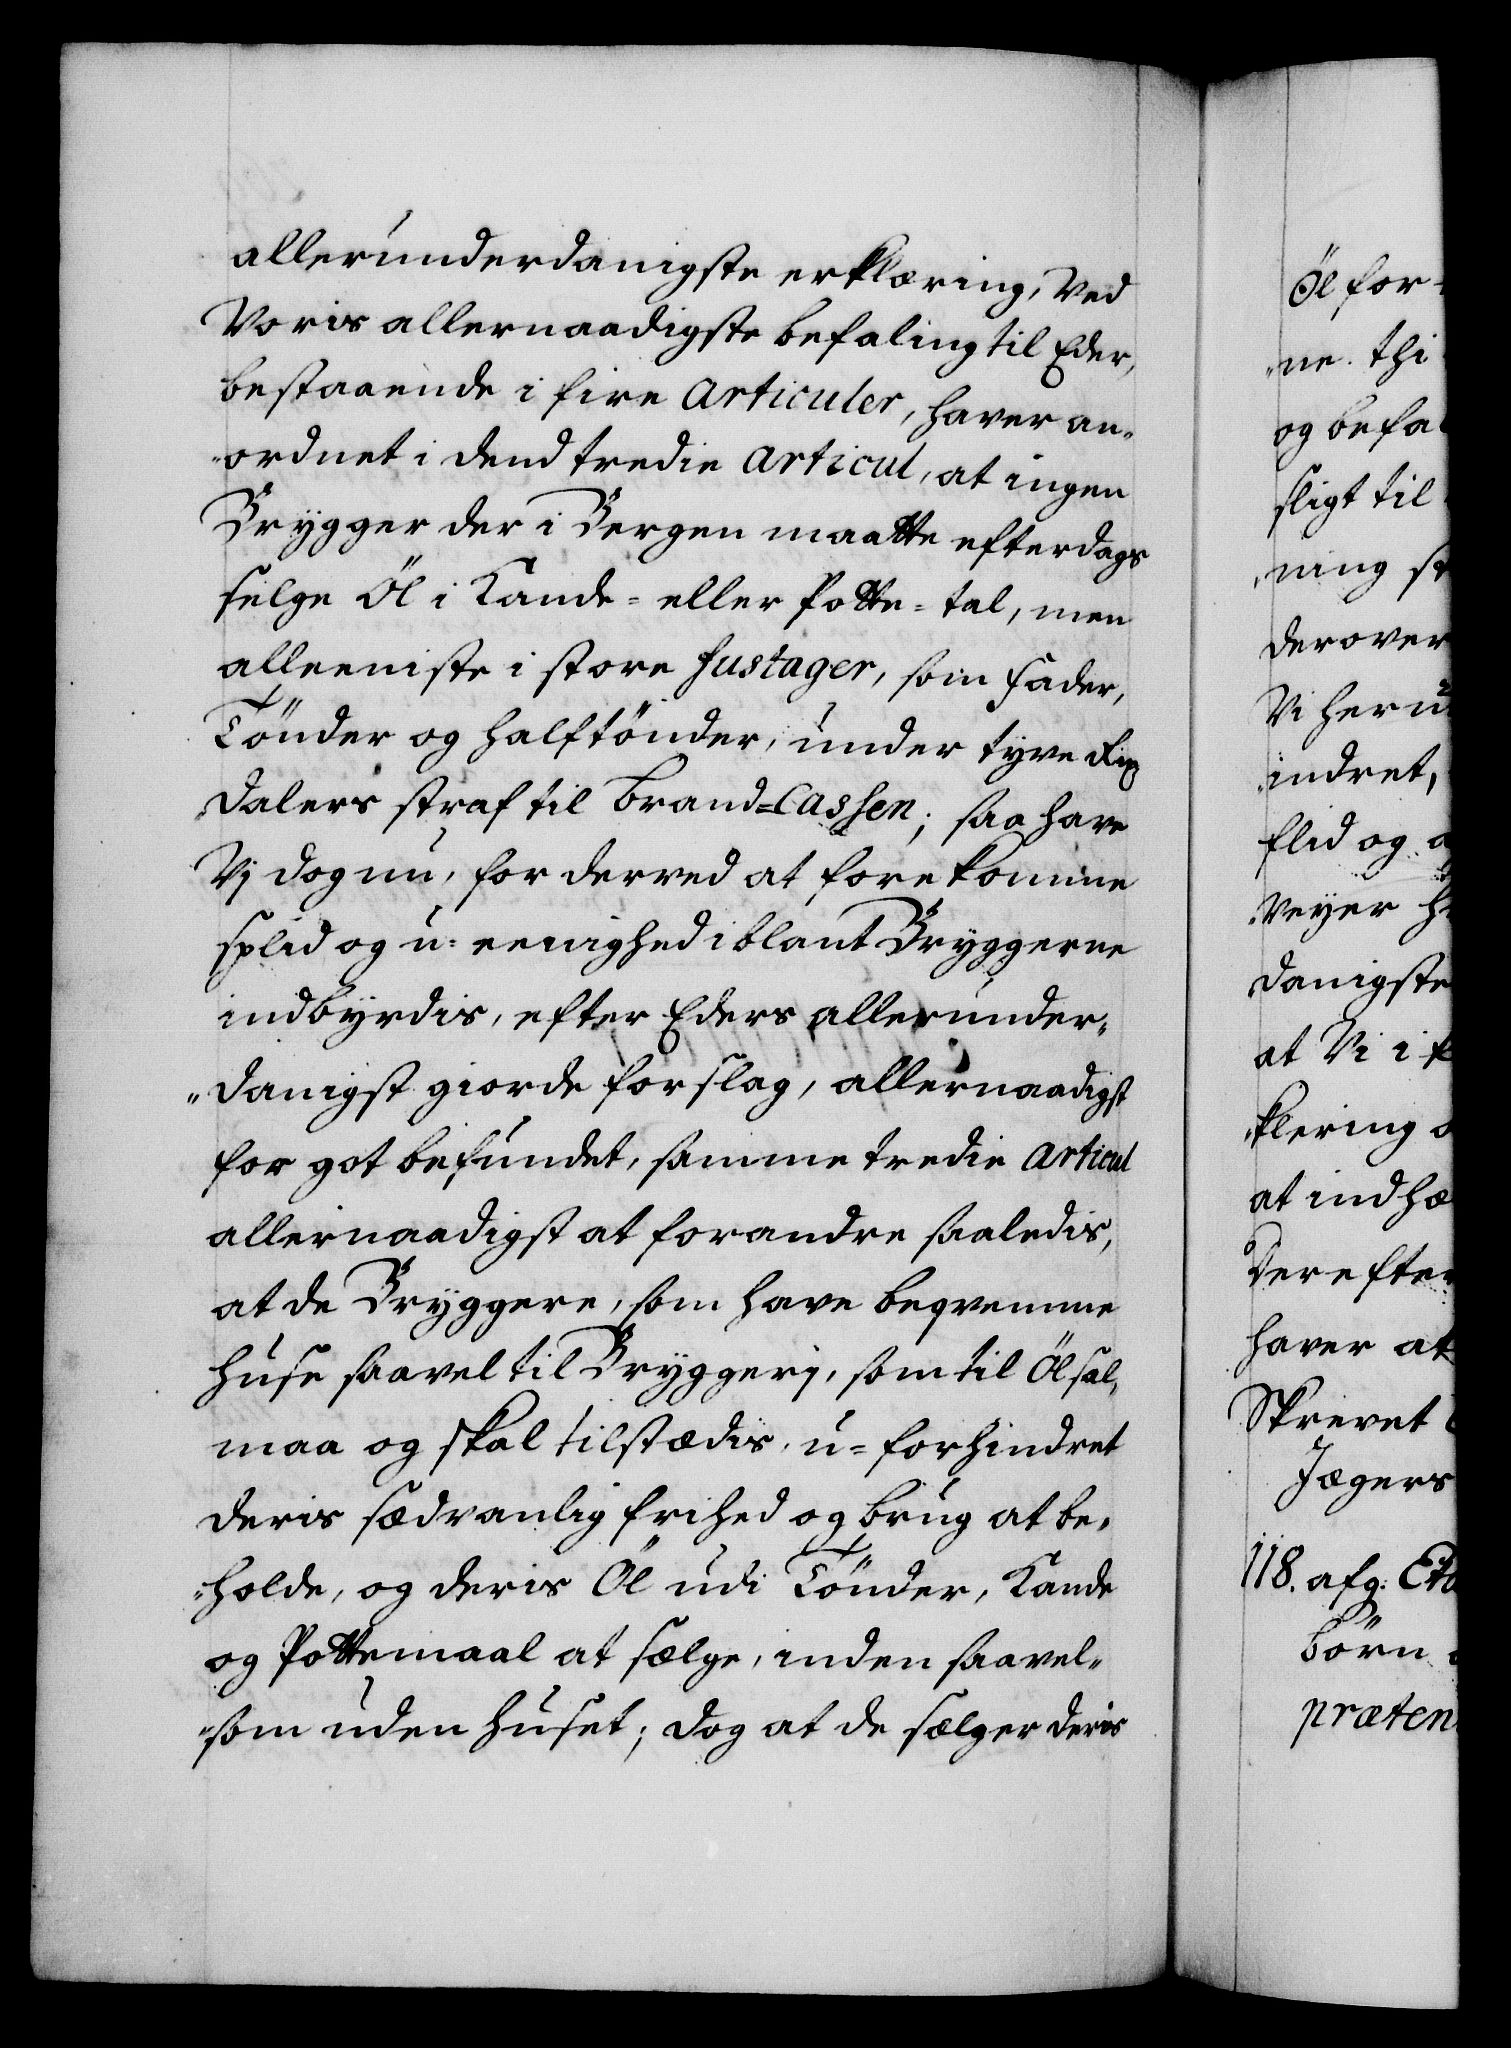 allerunderdanigste erklæring, Ved
Voris allernaadigste befaling til Eder,
bestaaende i fire Articuler, haver an-
ordnet i dend tredie Articul, at ingen
Brygger der i Bergen maatte efterdags
selge Öl i Kande= eller Potte=tal, men
alleeniste i store fustager, som fader,
Tönder og halftönder, under tyve Rix
dalers straf til brand=Cassen; saa have
Vj dog nu, for derved at forekomme
splid og u=eenighed iblant Bryggerne
indbyrdis, efter Eders allerunder-
danigst giorde forslag, allernaadigst
for got befundet, samme tredie Articul
allernaadigst at forandre saaledis,
at de Bryggere, som have beqvemme
huse saavel til Bryggerj, som til Ölsal,
maa og skal tilstædis, u=forhindret
deris sædvanlig frihed og brug at be-
holde, og deris Öl udi Tönder, Kande
og Pottemaal at sælge, inden saavel-
som uden huset; dog at de sælger deris
Öl for
ne. thi
og befa
sligt til
ning
derover
Vi heru
indret,
flid og
veyer
danigste
at Vi i
klering
at indhæ
derefter
haver at
Skrevet
Jægers
118. afg:
börn
præten